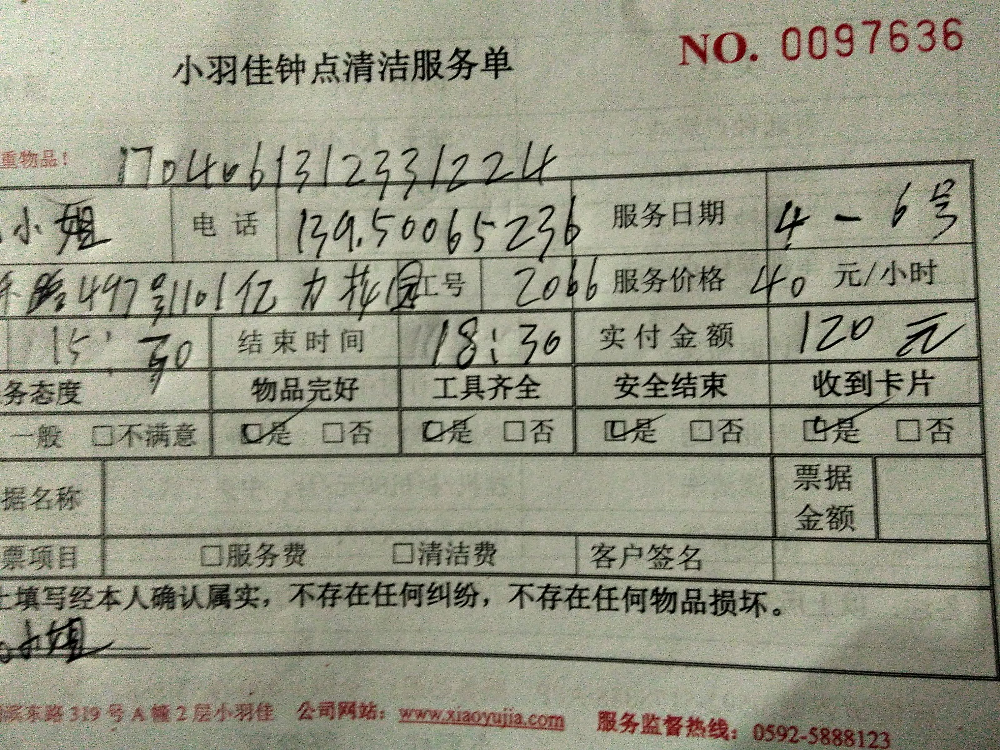 小羽佳钟点清洁服务单 NO. 0097636
重物品!
17040613123331224
小姐 电话 139.50065236 服务日期 4-6号
路497号1101亿力 园 工号 2066 服务价格 40 元/小时
15:30 结束时间 18:30 实付金额 120元
务态度 物品完好 工具齐全 安全结束 收到卡片
一般 □不满意 ☑是 □否 ☑是 □否 ☑是 □否 ☑是 □否
据名称 票据金额
票项目 □服务费 □清洁费 客户签名
上填写经本人确认属实，不存在任何纠纷，不存在任何物品损坏。
小姐
滨东路319号A幢2层小羽佳 公司网站：www.xiaoyujia.com 服务监督热线：0592-5888123